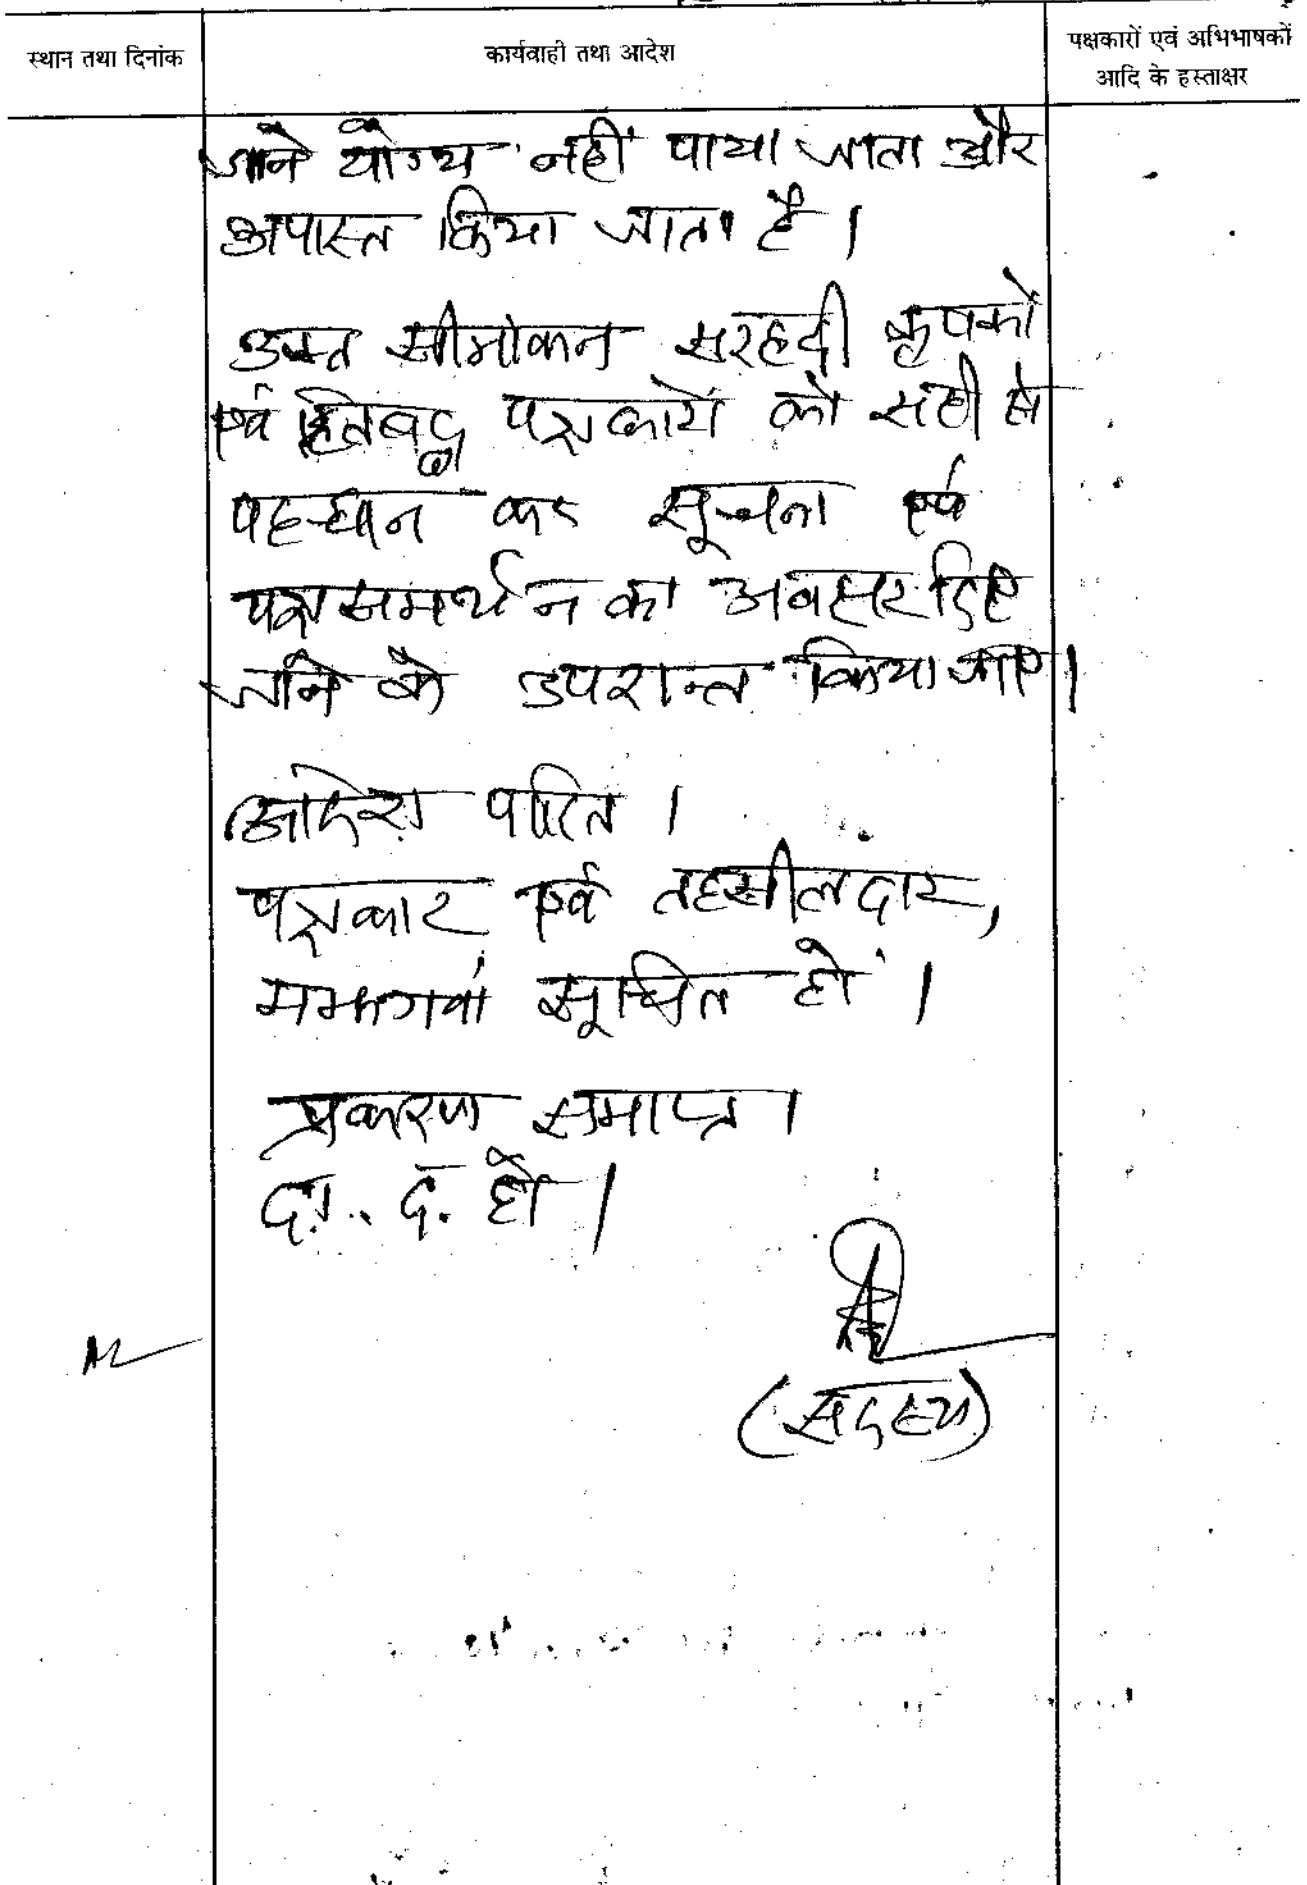 स्थान तथा दिनांक
कार्यवाही तथा आदेश
पक्षकारों एवं अभिभाषकों
आदि के हस्ताक्षर
जाने योग्य नहीं पाया जाता और
अपास्त किया जाता है।
उक्त सीमांकन सरहदी कृषकों
एवं हितबद्ध पक्षकारों को सही से
पहचान कर सूचना एवं
पक्ष समर्थन का अवसर दिए
जाने के उपरान्त किया जाए।
आदेश पारित।
पक्षकार एवं तहसीलदार,
मझगवां सूचित हों।
प्रकरण समाप्त।
दा. द. हो।
(सदस्य)